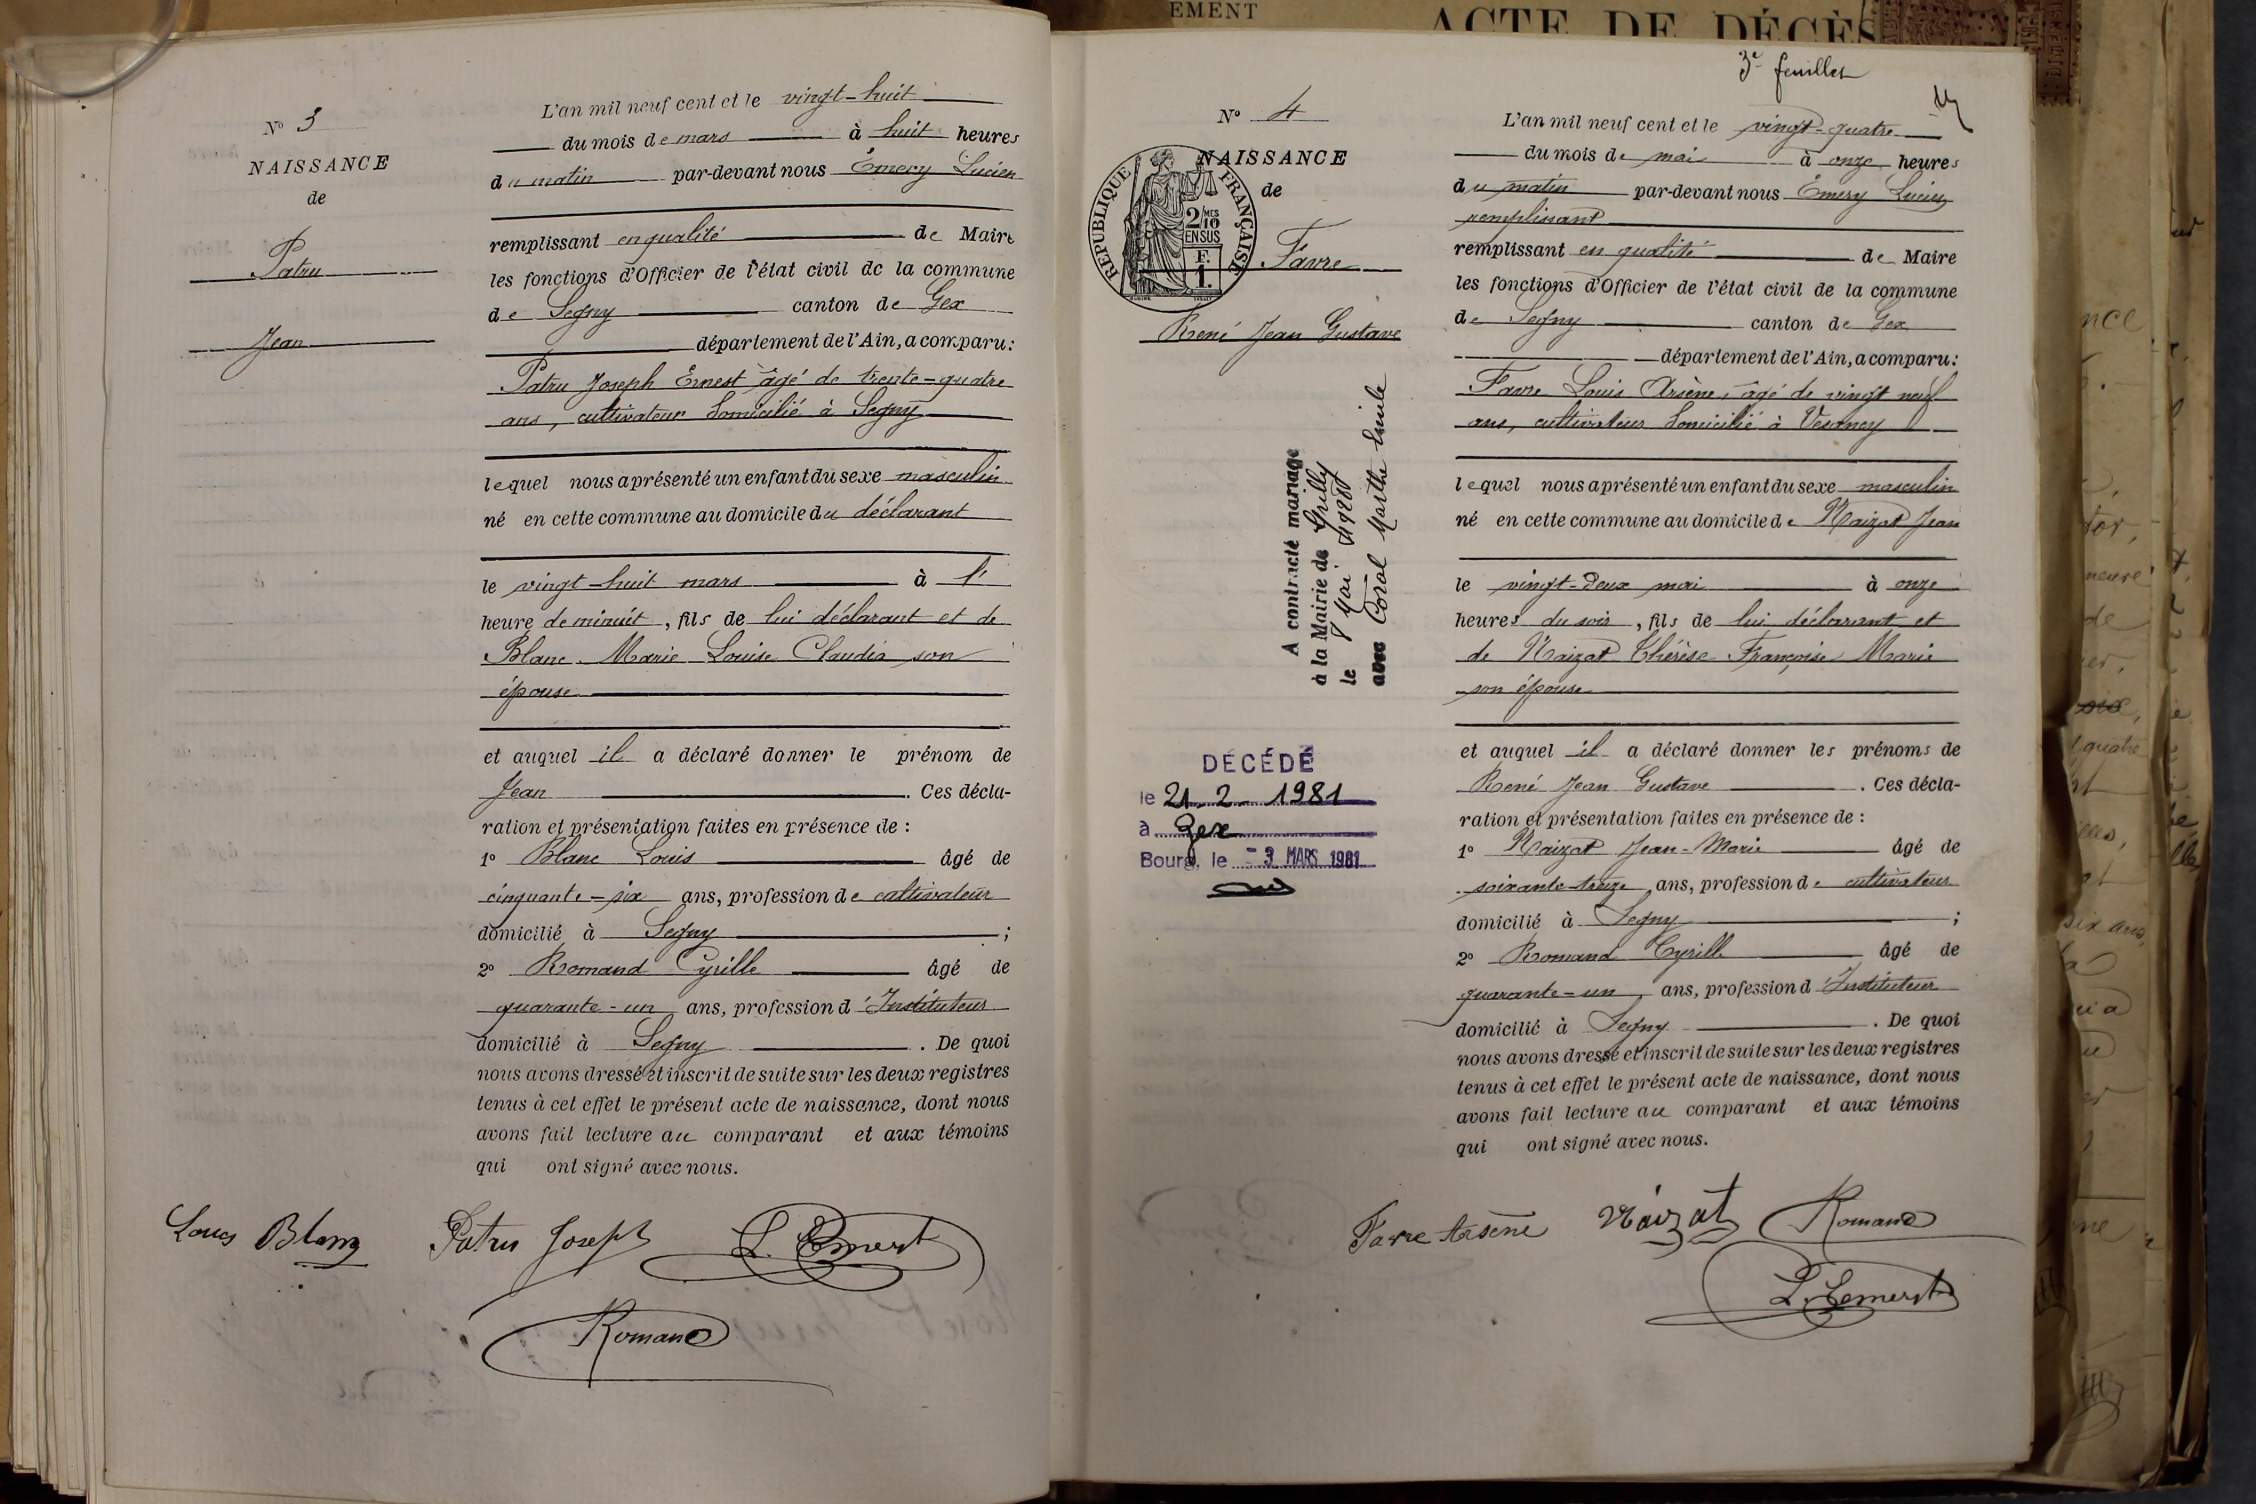 EMENT
ACTE DE DÉCÈS
Nº 3
NAISSANCE
de
Patru
Jean
L'an mil neuf cent et le vingt-huit
du mois de mars à huit heures
du matin par-devant nous Émery Lucien
remplissant en qualité de Maire
les fonctions d'Officier de l'état civil de la commune
de Segny canton de Gex
département de l'Ain, a comparu:
Patru Joseph Ernest âgé de trente-quatre
ans, cultivateur domicilié à Segny
lequel nous a présenté un enfant du sexe masculin
né en cette commune au domicile du déclarant
le vingt-huit mars à l'
heure de minuit, fils de lui déclarant et de
Blanc Marie Louise Claudia son
épouse
et auquel il a déclaré donner le prénom de
Jean. Ces décla-
ration et présentation faites en présence de :
1º Blanc Louis âgé de
cinquante-six ans, profession de cultivateur
domicilié à Segny ;
2º Romand Cyrille âgé de
quarante-un ans, profession d'Instituteur
domicilié à Segny. De quoi
nous avons dressé et inscrit de suite sur les deux registres
tenus à cet effet le présent acte de naissance, dont nous
avons fait lecture au comparant et aux témoins
qui ont signé avec nous.
Louis Blanc Patru Joseph L. Emery
Romand
3e feuillet
Nº 4
NAISSANCE
de
RÉPUBLIQUE FRANÇAISE
2/10 MES
EN SUS
F.
1.
Favre
René Jean Gustave
A contracté mariage
à la Mairie de Grilly
le 8 Mai 1928
avec Coral Marthe Emile
DÉCÉDÉ
le 21-2-1981
à Gex
Bourg, le -3 MARS 1981
L'an mil neuf cent et le vingt-quatre
du mois de mai à onze heures
du matin par-devant nous Émery Lucien
remplissant
remplissant en qualité de Maire
les fonctions d'Officier de l'état civil de la commune
de Segny canton de Gex
département de l'Ain, a comparu:
Favre Louis Arsène, âgé de vingt neuf
ans, cultivateur domicilié à Vesancy
lequel nous a présenté un enfant du sexe masculin
né en cette commune au domicile de Naizot Jean
le vingt-deux mai à onze
heures du soir, fils de lui déclarant et
de Naizot Thérèse Françoise Marie
son épouse
et auquel il a déclaré donner les prénoms de
René Jean Gustave. Ces décla-
ration et présentation faites en présence de :
1º Naizot Jean-Marie âgé de
soixante-treize ans, profession de cultivateur
domicilié à Segny ;
2º Romand Cyrille âgé de
quarante-un ans, profession d'Instituteur
domicilié à Segny. De quoi
nous avons dressé et inscrit de suite sur les deux registres
tenus à cet effet le présent acte de naissance, dont nous
avons fait lecture au comparant et aux témoins
qui ont signé avec nous.
Favre Arsène Naizot Romand
L. Emery